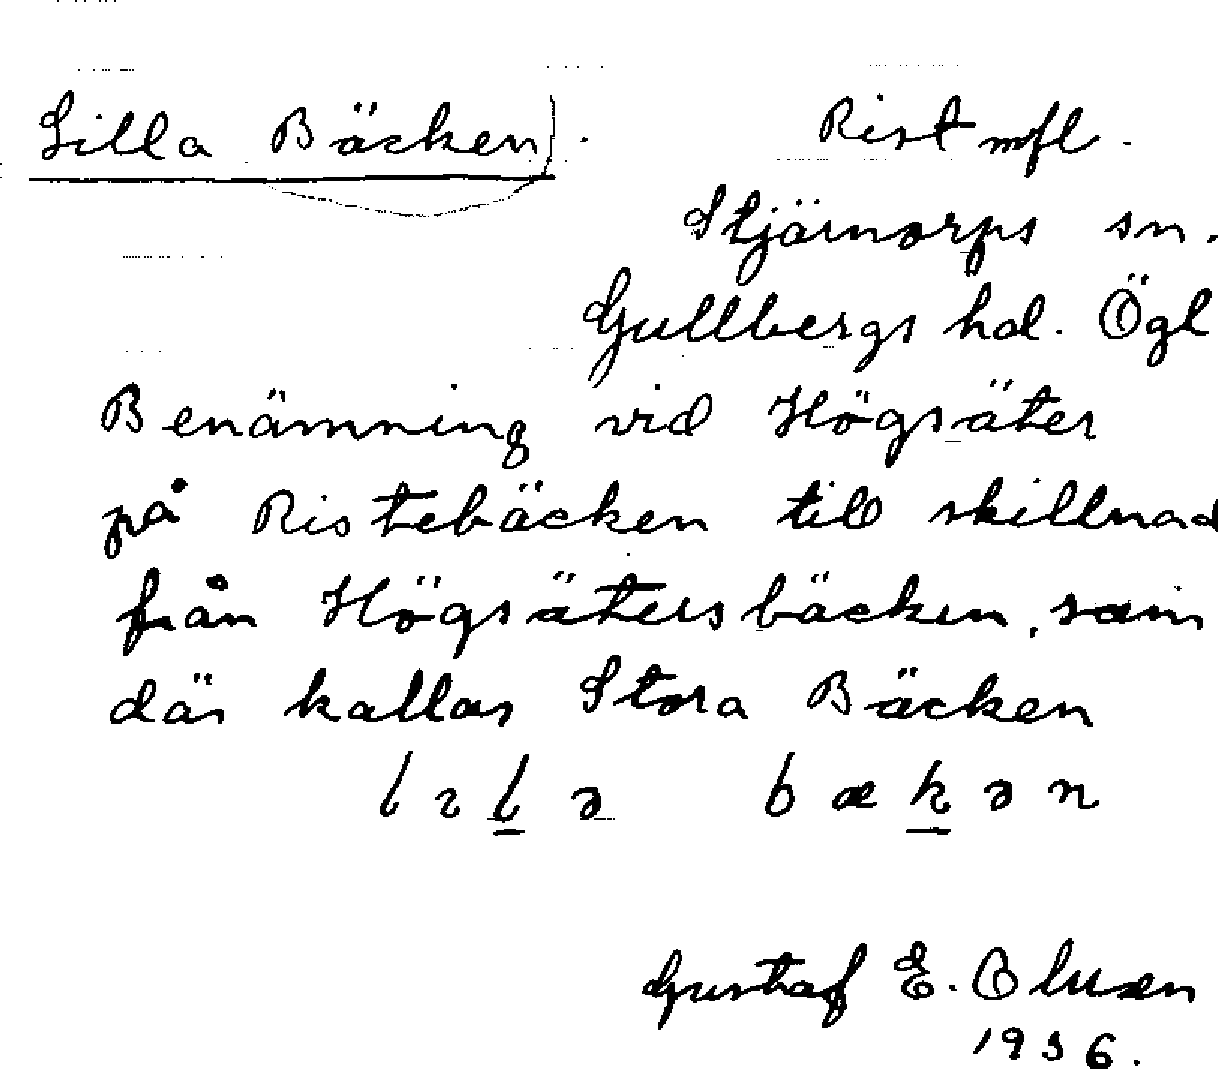 Lilla Bäcken. Rist mfl.
Stjärnorps sn.
Gullbergs hd. Ögl
Benämning vid Högsäter
på Ristebäcken till skillnad
från Högsätersbäcken, som
där kallas Stora Bäcken
lɩlə bækən
Gustaf E. Olusen
1936.